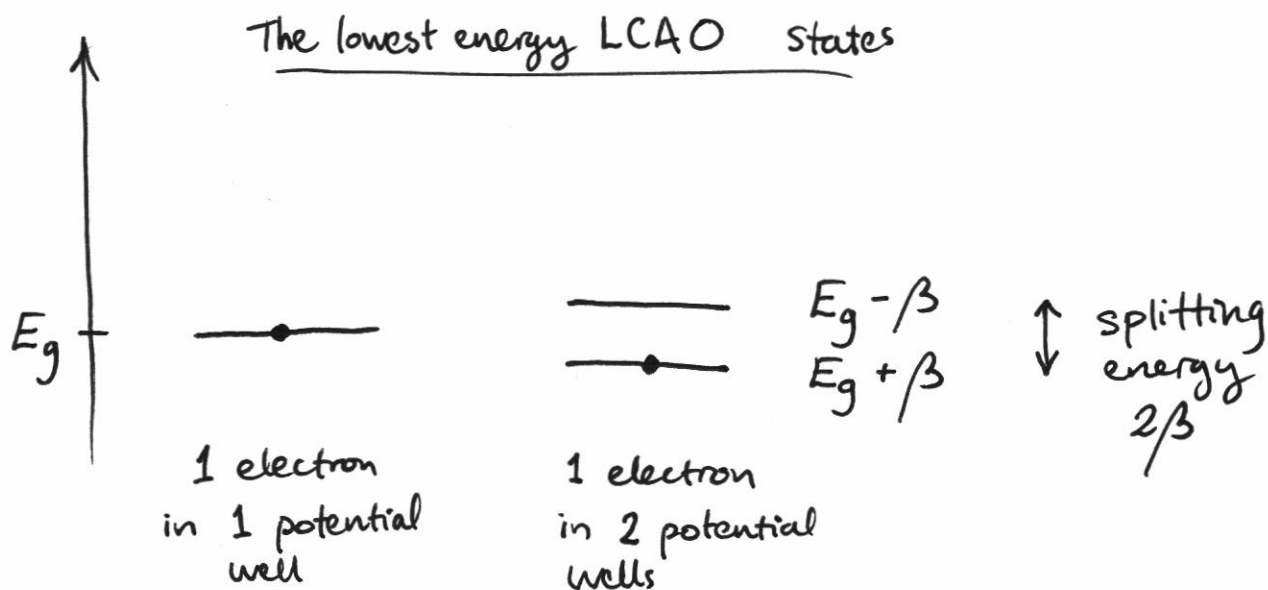 The lowest energy LCAO states
E_g
E_g - β
E_g + β
splitting
energy
2β
1 electron
in 1 potential
well
1 electron
in 2 potential
wells